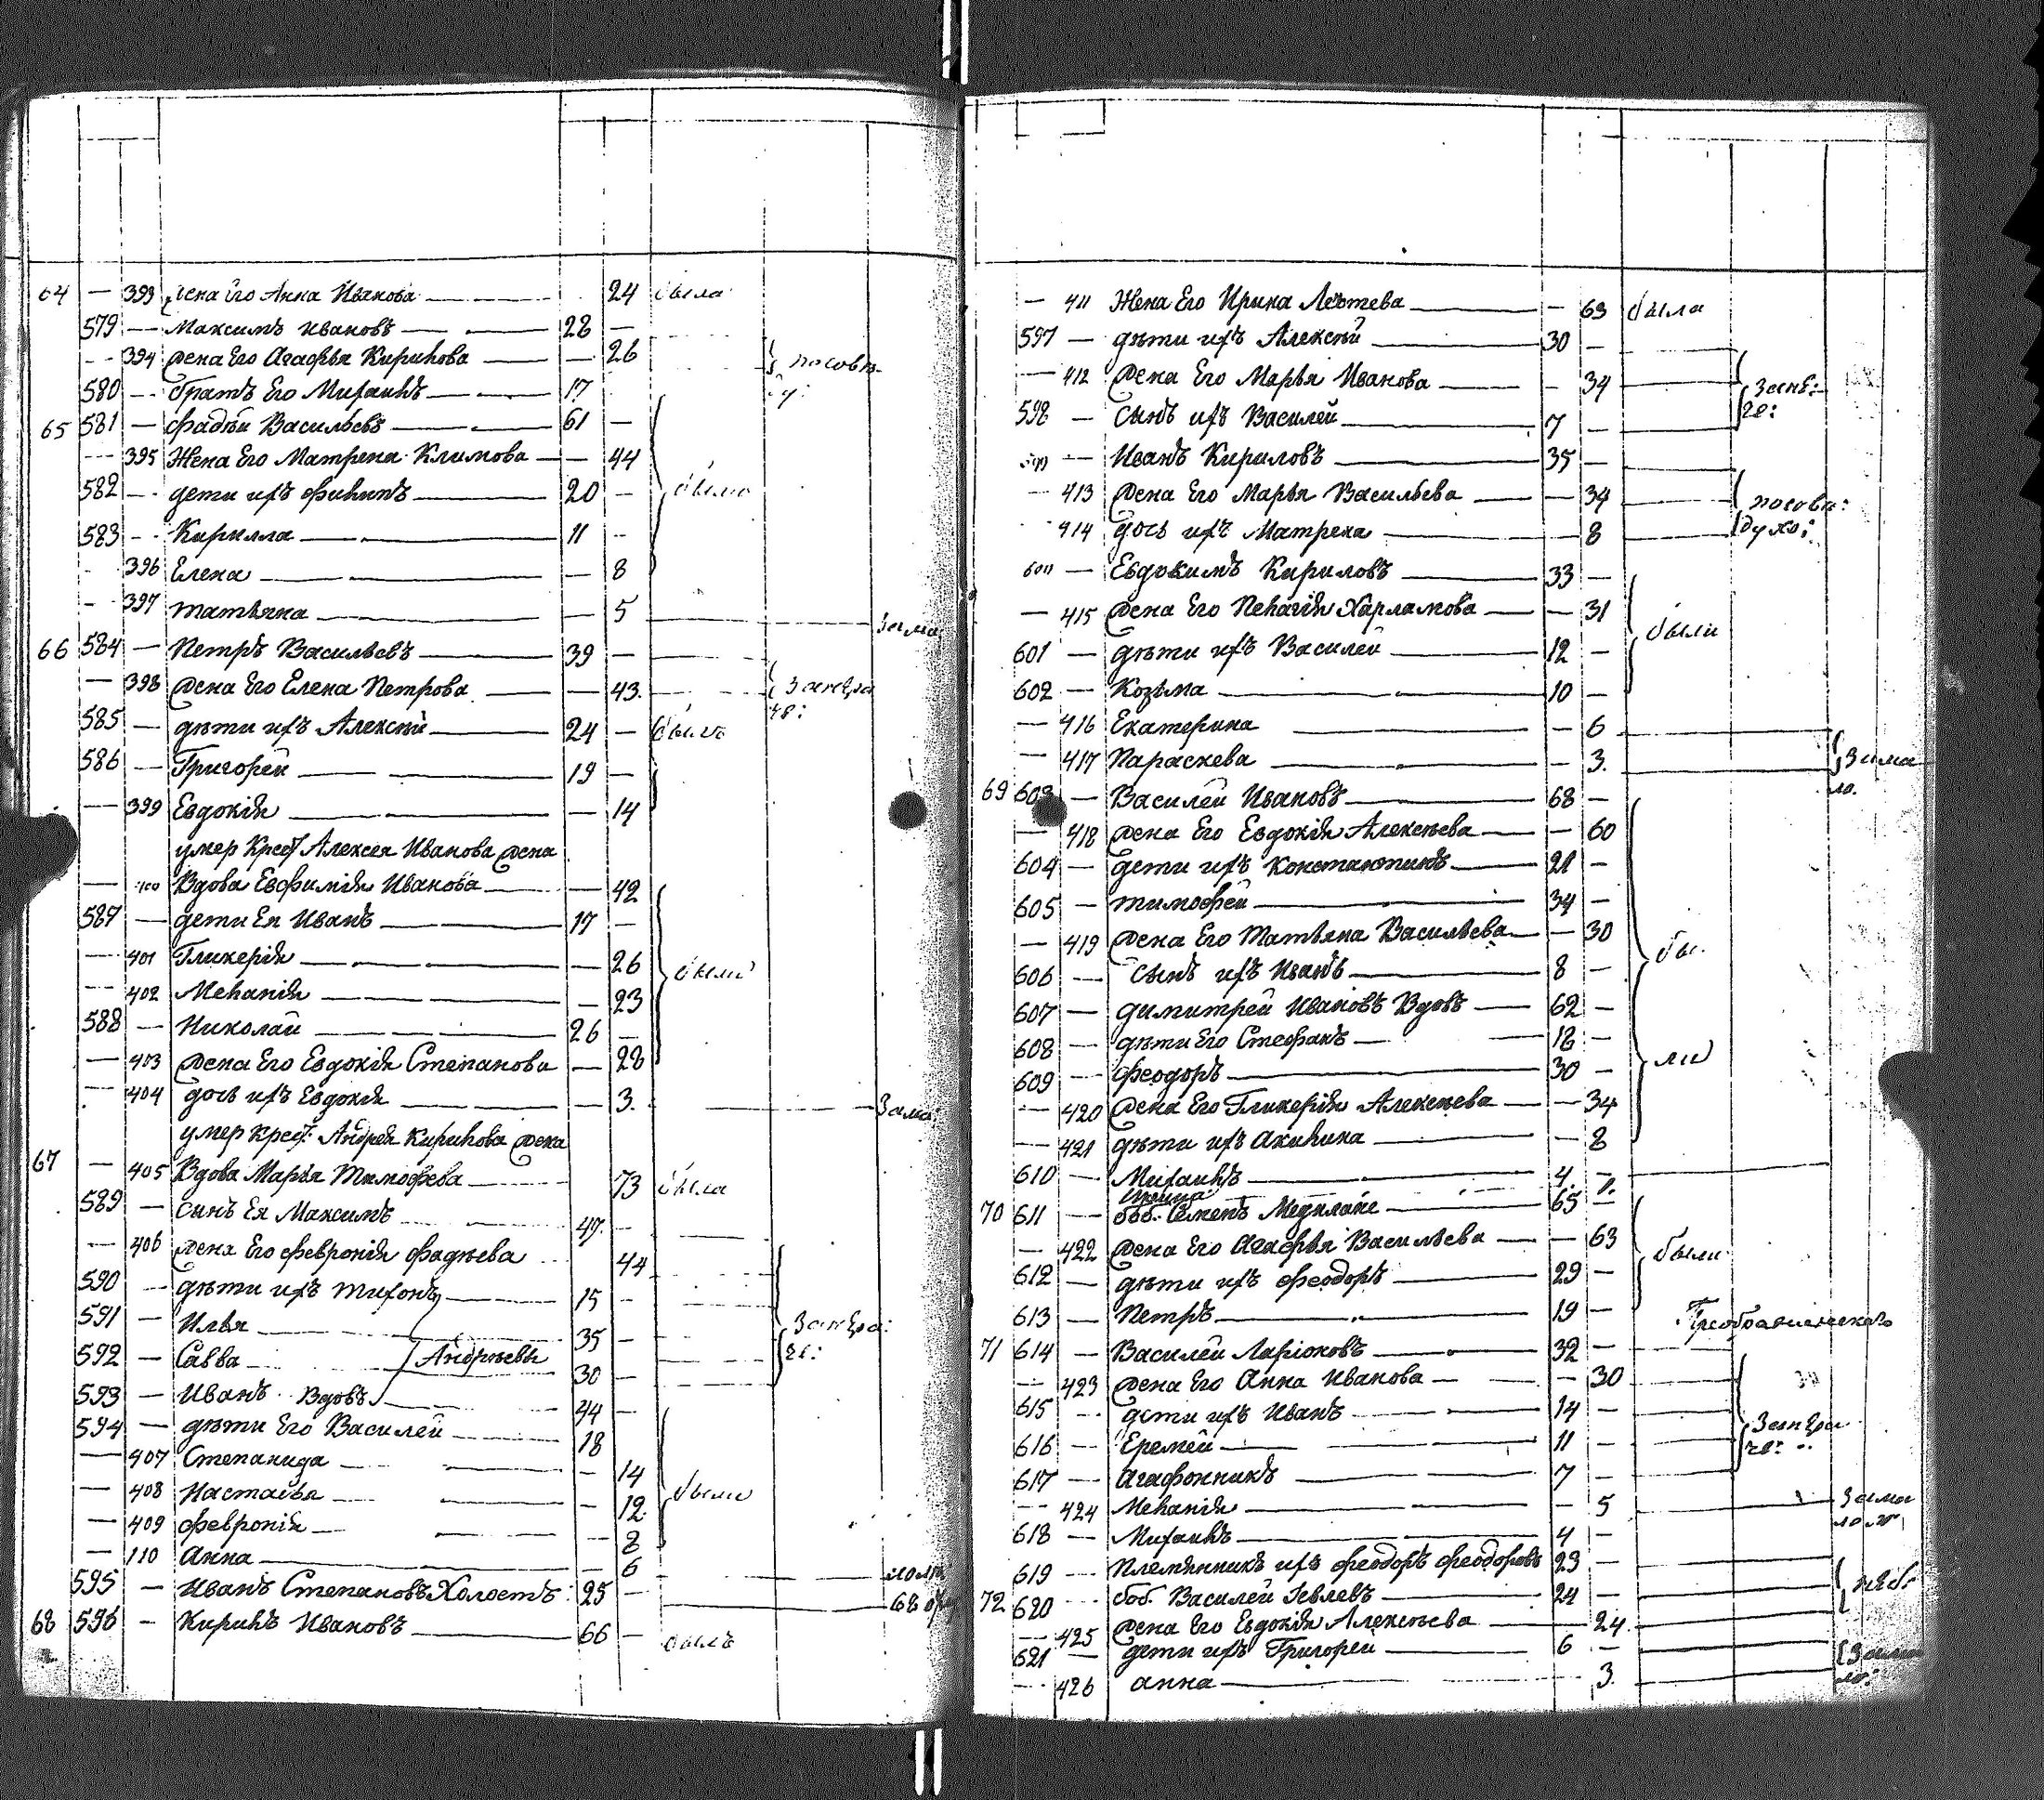 64 — 393 жена Его Анна Иванова — 24 была
579 — Максимъ Ивановъ — 28 —
— 394 жена Его Агафья Кирилова — 26
580 — братъ Его Михаилъ — 17
65 581 — Фадѣй Васильевъ — 61 —
— 395 Жена Его Матрена Климова — 44
582 — дети ихъ Филипъ — 20 — были
583 — Кирилла — 11 —
— 396 Елена — 8
— 397 Татьяна — 5 — за мало
66 584 — Петръ Васильевъ — 39 —
— 398 жена Его Елена Петрова — 43.
585 — дѣти ихъ Алексѣй — 24 — былъ
586 — Григорей — 19 —
— 399 Евдокія — 14
умер Крест Алексея Иванова жена
— 400 Вдова Евфимія Иванова — 42
587 — дети Ея Иванъ — 17 —
— 401 Гликерія — 26
— 402 Меланія — 23 были
588 — Николай — 26 —
— 403 жена Его Евдокія Степанова — 28
— 404 дочь ихъ Евдокія — 3. — за мало:
умер крест: Андрея Кирилова жена
67 — 405 Вдова Марья Тимофеева — 73 была
589 — сынъ Ея Максимъ 47. —
— 406 жена Его Февронія Фадѣева 44
590 — дѣти ихъ Тихонъ — 15 —
591 — Илья — 35 —
592 — Савва Андреевы 30 —
593 — Иванъ Вдовъ 44 —
594 — дѣти Его Василей 18
— 407 Степанида — 14
— 408 Настасья — 12. были
— 409 Февронія — 8
— 110 Анна — 6
595 — Иванъ Степановъ Холостъ: 25 —
68 596 — Кирилъ Ивановъ — 66 — былъ
— 411 Жена Его Ирина Леѡтева — 63 была
597 — дѣти ихъ Алексѣй — 30 —
— 412 жена Его Марья Иванова — 34
598 — сынъ ихъ Василей — 7 —
599 — Иванъ Кириловъ — 35 —
— 413 жена Его Марья Васильева — 34
— 414 дочь ихъ Матрена — 8 духо:
600 — Евдокимъ Кириловъ — 33 —
— 415 жена Его Пелагія Харламова — 31
601 — дѣти ихъ Василей — 12 — были
602 — Козьма — 10 —
— 416 Екатерина — 6
— 417 Параскева — 3. за мало
69 603 — Василей Ивановъ — 68 —
— 418 жена Его Евдокія Алексеева — 60
604 — дети ихъ Константинъ — 21 —
605 — Тимофей — 34 —
— 419 жена Его Татьяна Васильева — 30
606 — сынъ ихъ Иванъ — 8 — бы.
607 — Димитрей Ивановъ Вдовъ — 62 —
608 — дѣти Его Стефанъ — 18 —
609 — Феодоръ — 30 — ли
— 420 жена Его Гликерія Алексеева — 34
— 421 дѣти ихъ Акилина — 8
610 — Михаилъ — 4. —
70 611 — боб. Семенъ — 65 —
— 422 жена Его Агафья Васильева — 63
612 — дѣти ихъ Феодоръ — 29 — были
613 — Петръ — 19 —
71 614 — Василей Ларіоновъ — 32 —
— 423 жена Его Анна Иванова — 30
615 — дети ихъ Иванъ — 14 —
616 — Еремей — 11 —
617 — Агафонникъ — 7 —
— 424 Меланія — 5 за мало
618 — Михаилъ — 4 —
619 — Племянникъ ихъ Феодоръ Феодоровъ 23 —
72 620 — боб. Василей Іевлевъ — 24 —
— 425 жена Его Евдокія Алексеева — 24.
621 — дети ихъ Григорей — 6 —
— 426 Анна — 3. за мало: